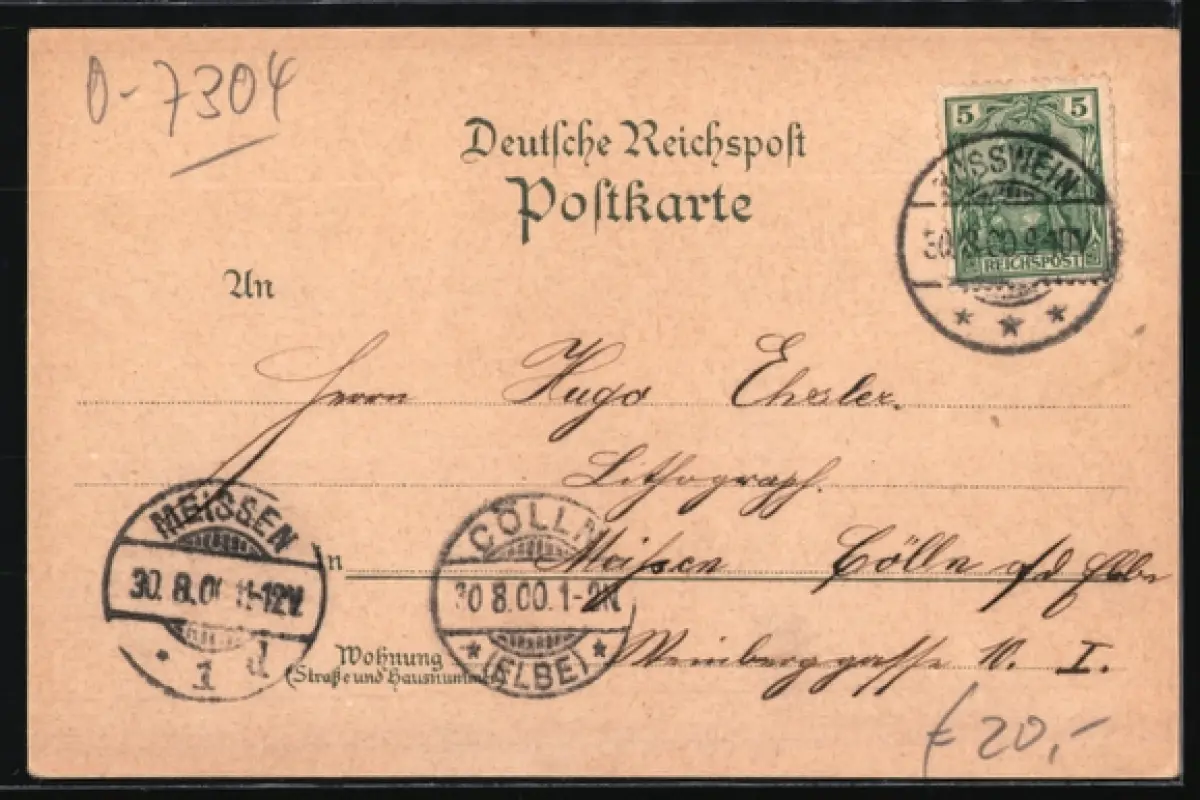 0-7304
Deutsche Reichspost
Postkarte
5 5
REICHSPOST
ROSSWEIN
30.8.00.9-10V.
* * *
An
Herrn Hugo Ehrler.
Lithograph.
in Meissen Cölln a/d Elbe
Wohnung
(Straße und Hausnummer)
Weinberggasse 10. I.
MEISSEN
30.8.00 11-12V.
* 1 d
CÖLLN
30 8.00.1-2N
* (ELBE) *
€ 20,-